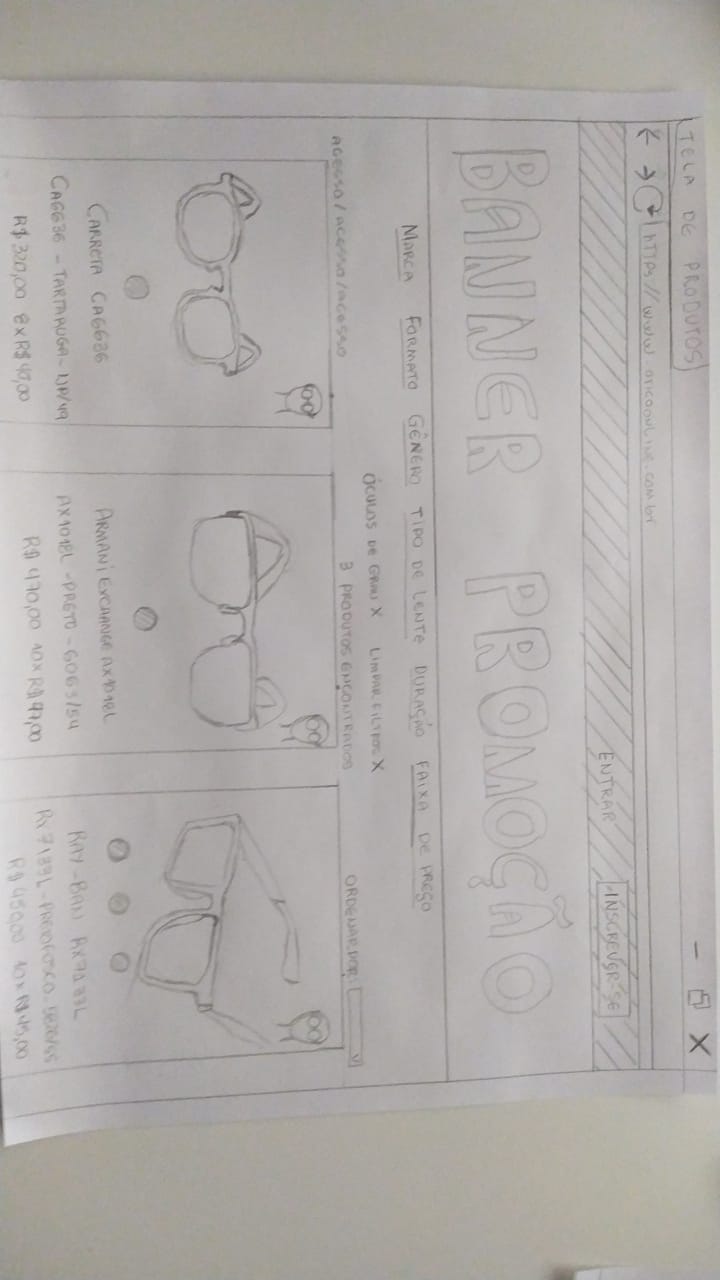 TELA DE PRODUTOS
https://www.oticaonline.com.br
ENTRAR INSCREVER-SE
BANNER PROMOÇÃO
MARCA FORMATO GÊNERO TIPO DE LENTE DURAÇÃO FAIXA DE PREÇO
ÓCULOS DE GRAU X LIMPAR FILTROS X
ACESSO/ACESSO/ACESSO 3 PRODUTOS ENCONTRADOS ORDENAR POR:
CARRETA CA6636
CA6636 - TARTARUGA - NP/49
R$ 320,00 8x R$ 40,00
ARMANI EXCHANGE AX1018L
AX1018L - PRETO - 6063/54
R$ 470,00 10x R$ 47,00
RAY-BAN RX7133L
RX7133L - PRETO FOSCO - 5820/55
R$ 450,00 10x R$ 45,00